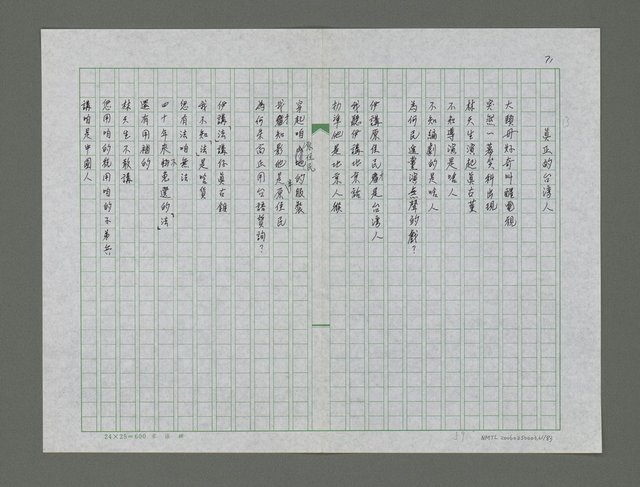 71
真正的台灣人
大頭哥好奇叫醒電視
突然一著學科出現
林天生演起真古董
不知導演是啥人
不知編劇的是啥人
為何民進黨演無聲的戲？
伊講原住民才是台灣人
我聽伊講北京話
扮準他是北京人猴
穿起咱原住民的服裝
我才知影他是原住民
為何吳高正用台語質詢？
伊講法講佇真古錐
我不知「法」是啥貨
您有法咱無法
四十年來物免選的「法」
還有用相的
林天生不敢講
您用咱的稅用咱的不弟兵
講咱是中國人
24×25=600
59